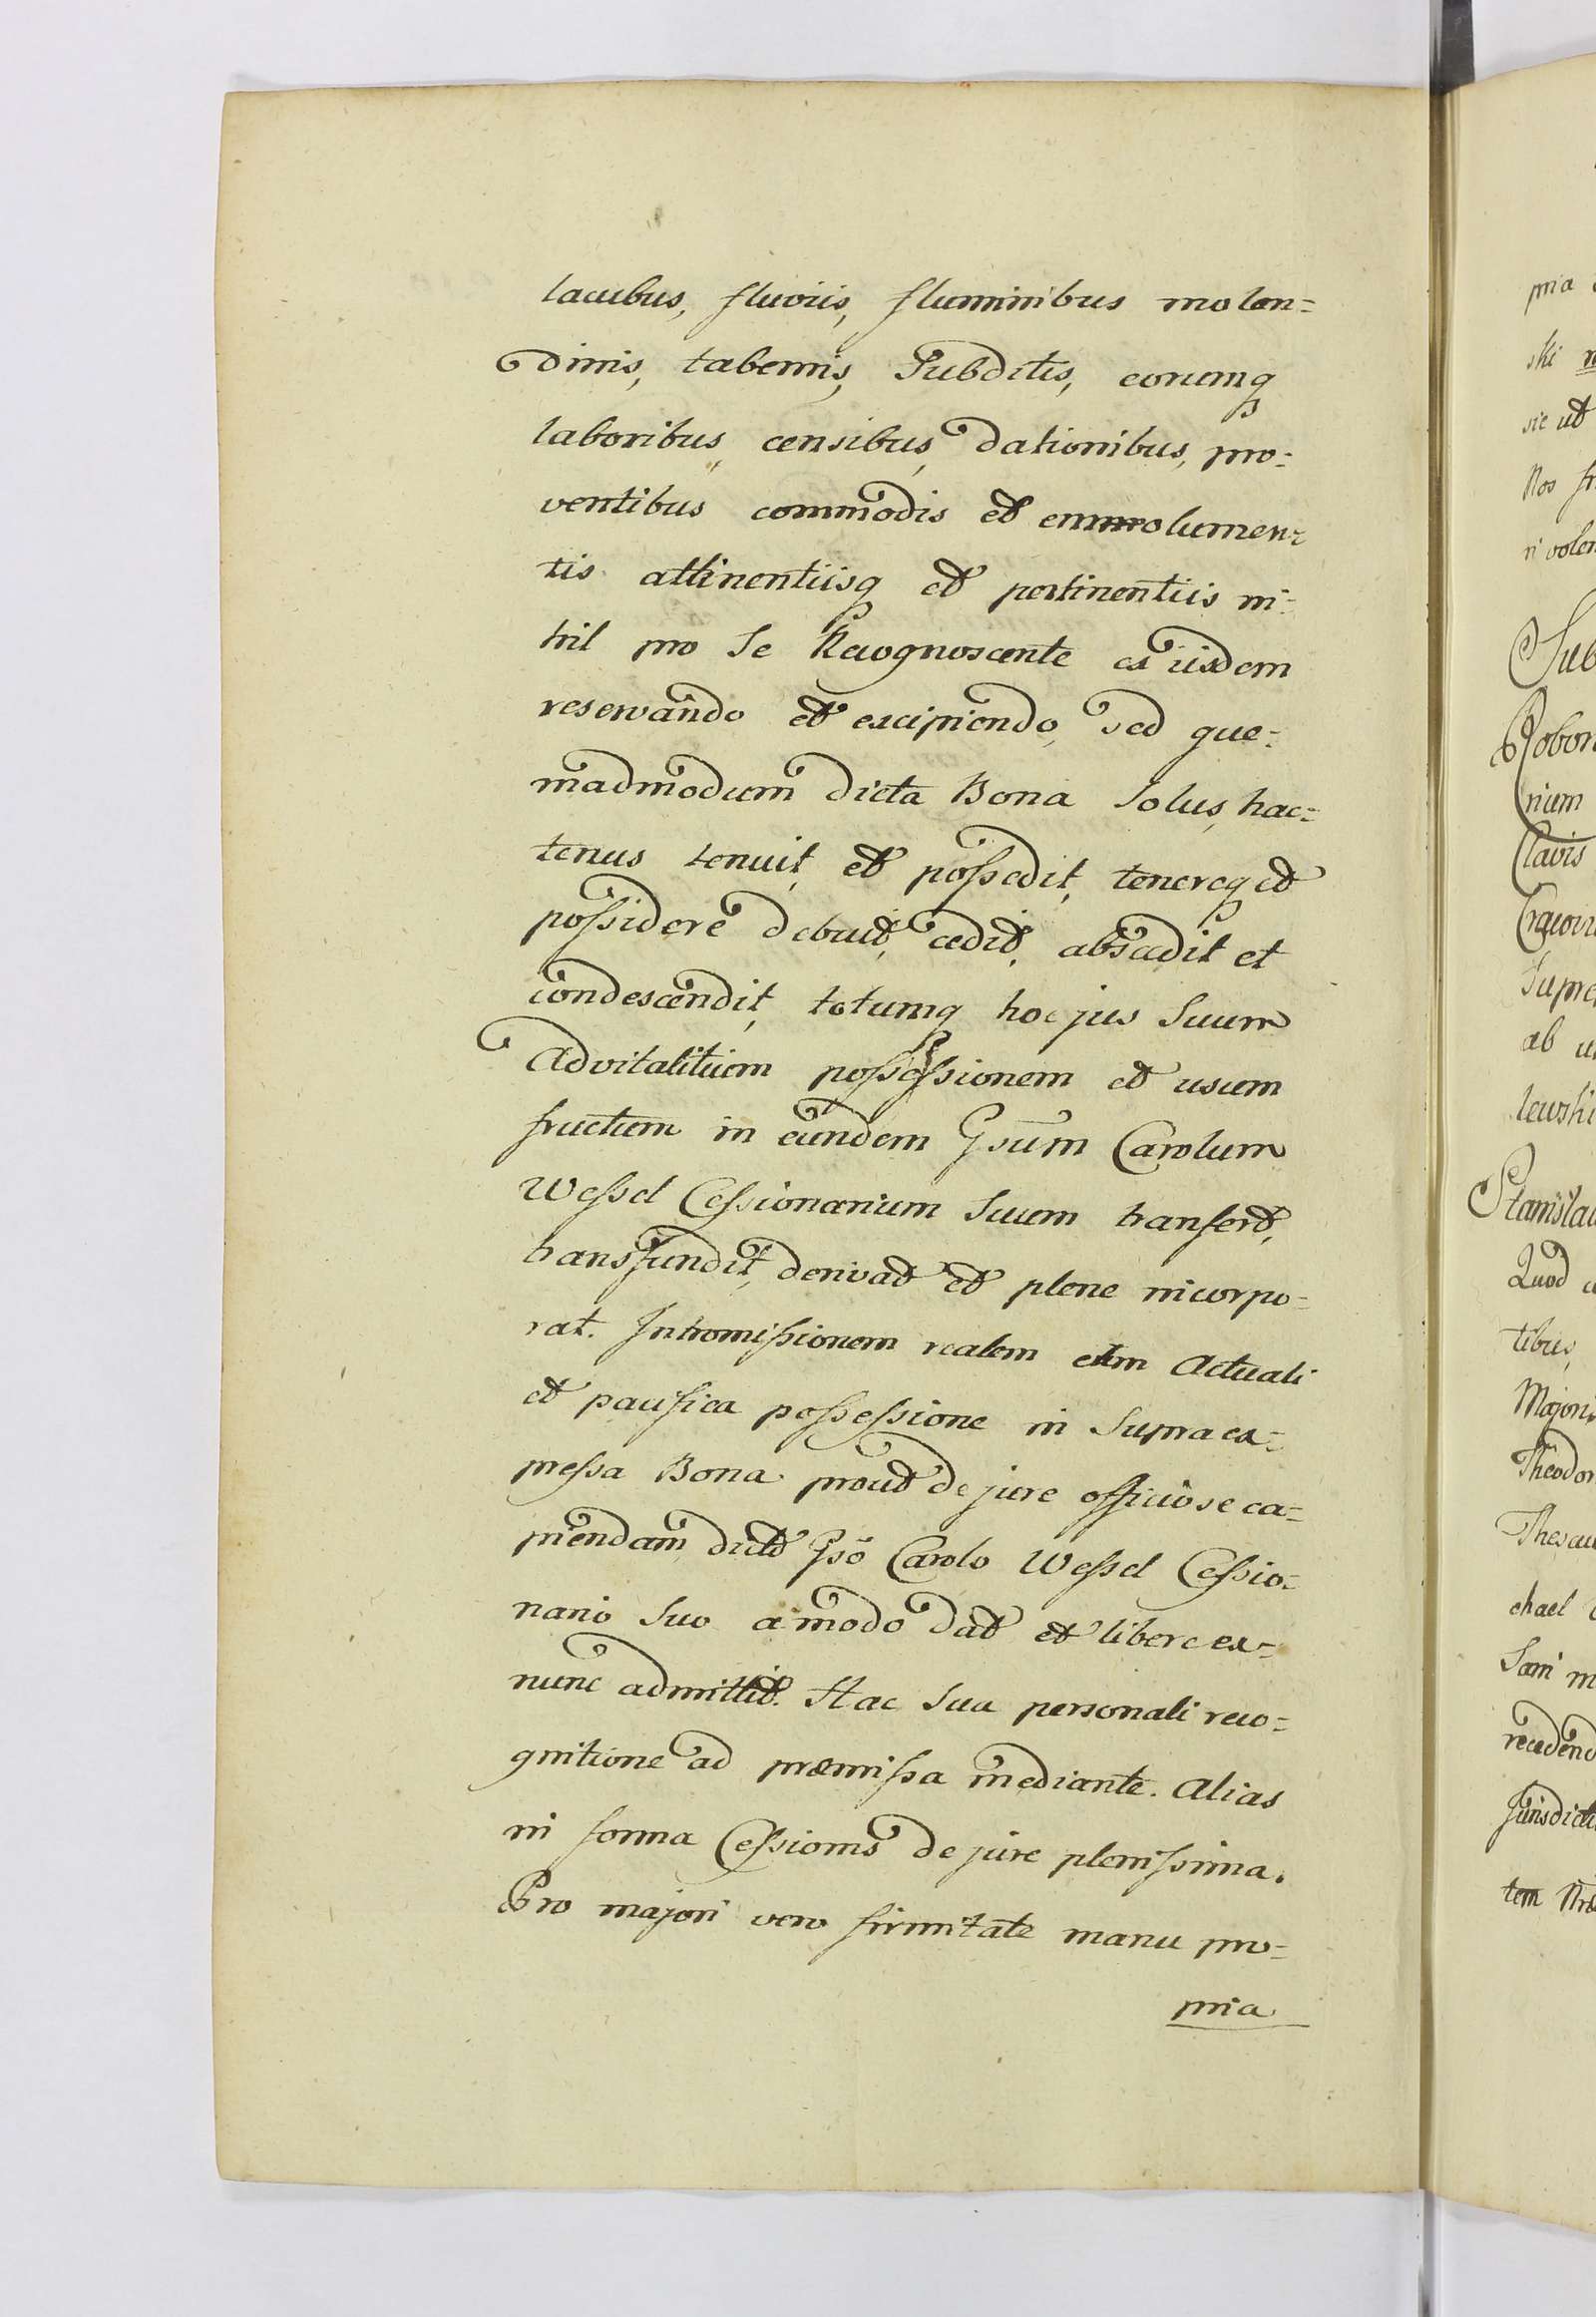 lacubus, fluviis, fluminibus molen=
dinis, tabernis, Subditis, eorumq
laboribus, censibus, dationibus, pro=
ventibus commodis et emmolumen=
tis attinentiisq et pertinentiis ni=
hil pro Se Recognoscente ex iisdem
reservando et excipiendo, sed que=
madmodum dicta Bona Solus, hac=
tenus tenuit, et possedit, tenereq et
possidere debuit, cedit, abscedit et
condescendit, totumq hoc jus Suum
Advitalitium possessionem et usum
fructum in eundem Gsum Carolum
Wessel Cessionarium Suum transfert,
transfundit, derivat et plene incorpo=
rat. Intromissionem realem cum Actuali
et pacifica possessione in Supra ex=
pressa Bona prout de jure officiose ca=
piendam, dicto Gso Carolo Wessel Cessio=
nario Suo amodo dat et libere ex=
nunc admittit. Hac Sua personali reco=
gnitione ad præmissa mediante. Alias
in forma Cessionis de jure plenissima.
Pro majori vero firmitate manu pro=
pria
pria
ski
sic ut
Nos
ni volen
Sub
Robor
rium
Clavis
Supre
ab
lewski
Stanislau
Quod
tibus,
Majori
Theodor
Thesau
chael
Sani
recedend
Jurisdicti
tem